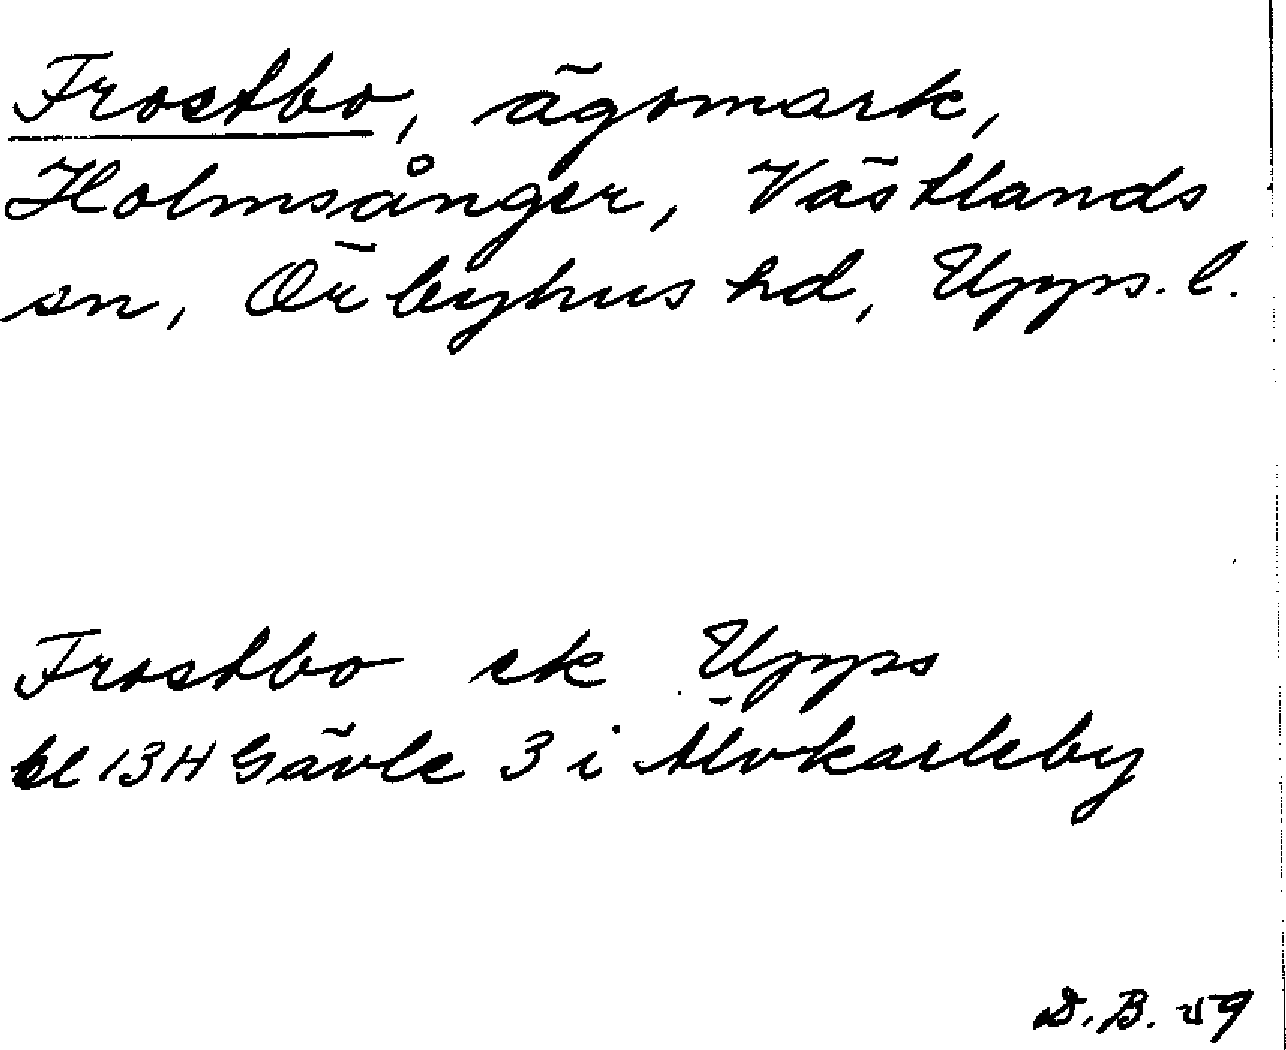 Frostbo, ägomark,
Holmsånger, Västlands
sn, Örbyhus hd, Upps. l.
Frostbo ek Upps
bl 13H Gävle 3 i Älvkarleby
D. B. 59